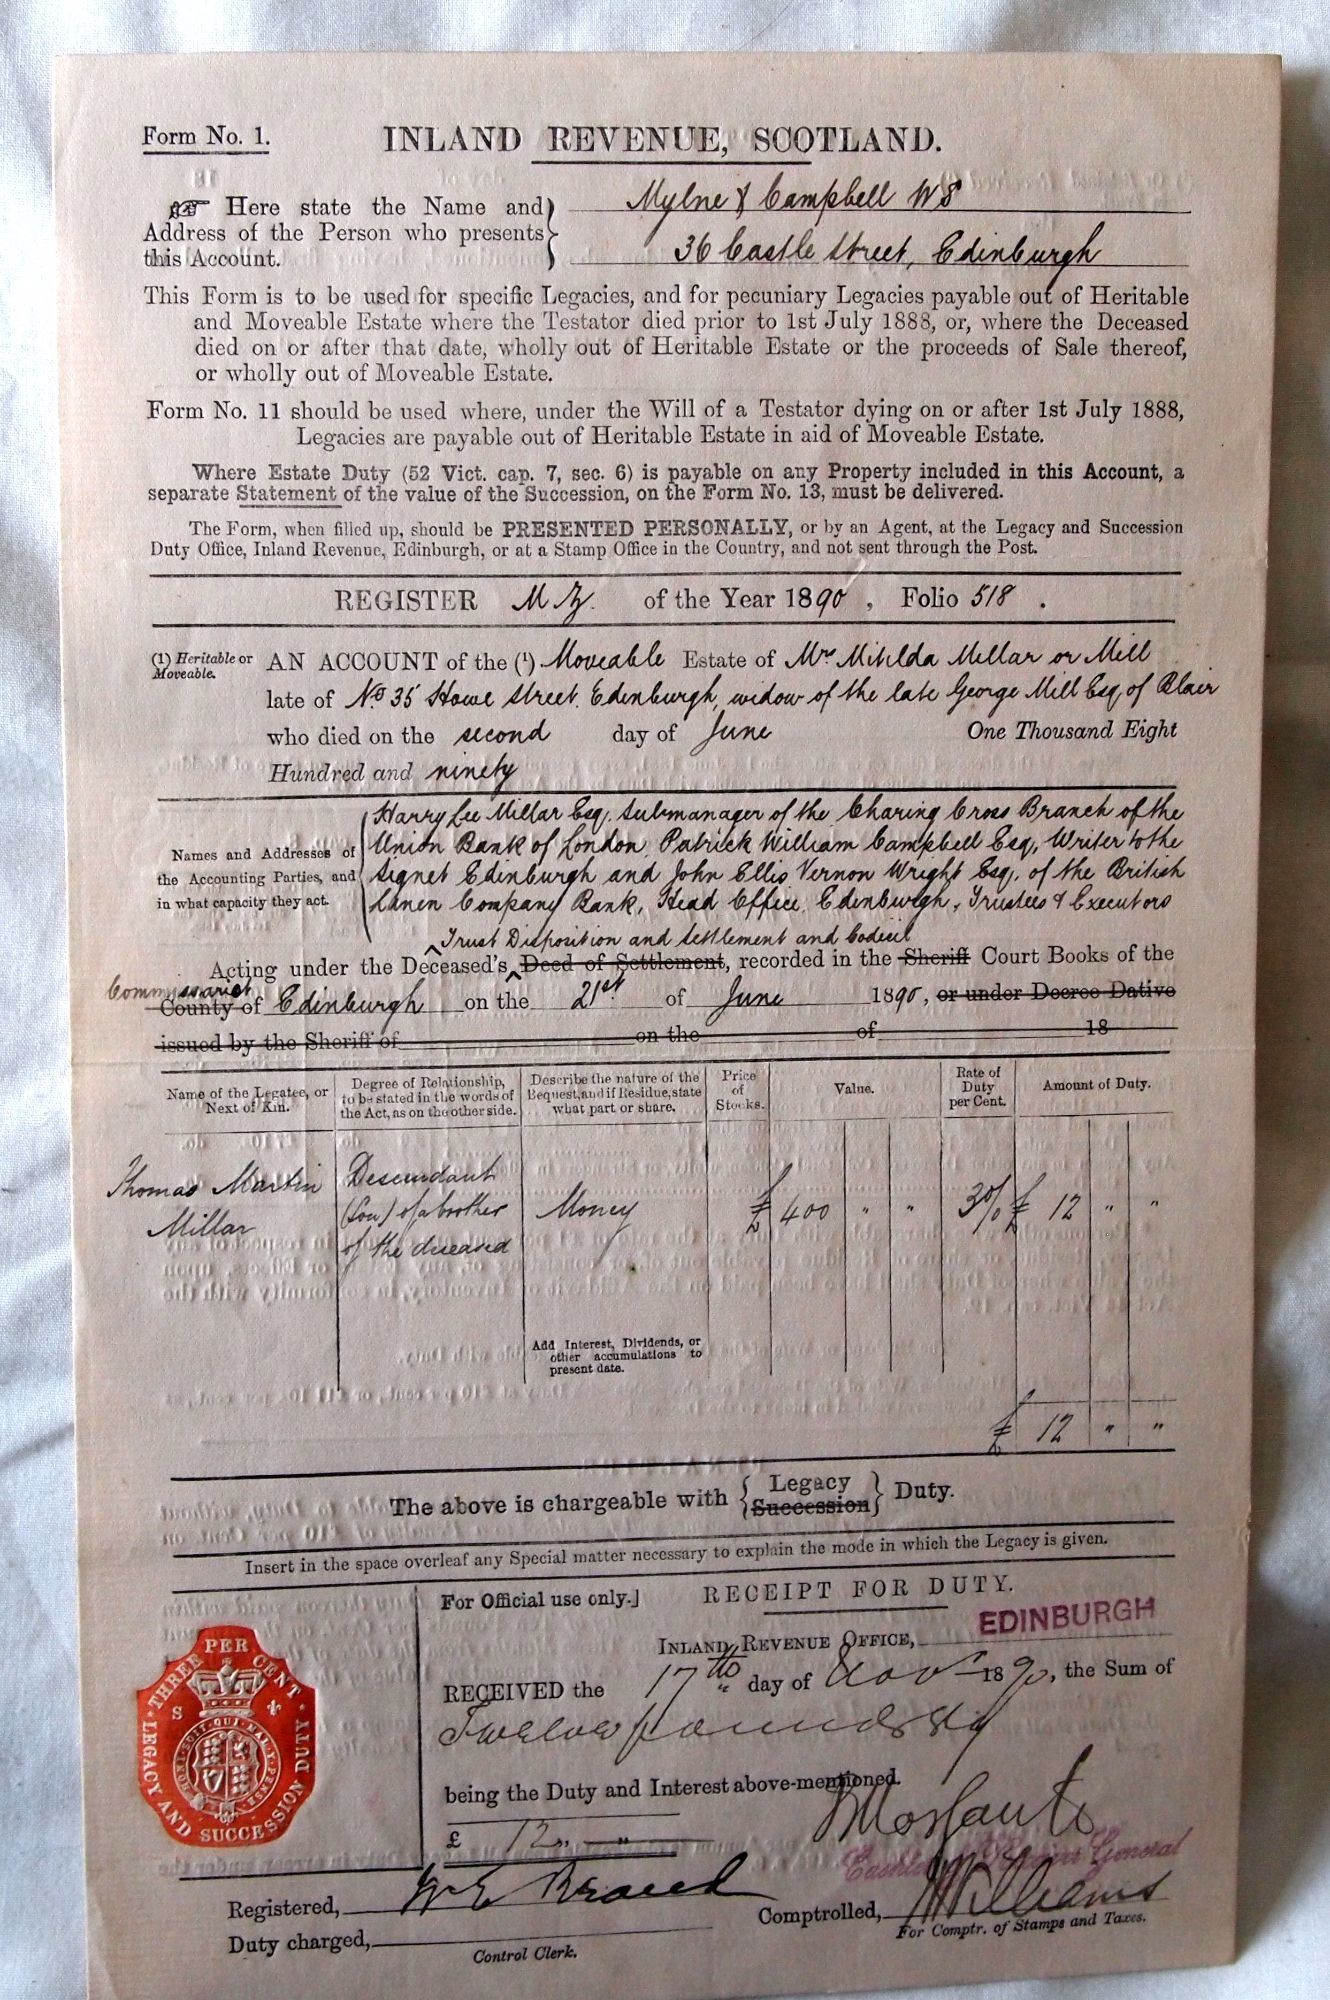 Form No. 1.
INLAND REVENUE, SCOTLAND.
Here state the Name and
Address of the Person who presents
this Account.
Mylne & Campbell WS
36 Castle Street, Edinburgh
This Form is to be used for specific Legacies, and for pecuniary Legacies payable out of Heritable
and Moveable Estate where the Testator died prior to 1st July 1888, or, where the Deceased
died on or after that date, wholly out of Heritable Estate or the proceeds of Sale thereof,
or wholly out of Moveable Estate.
Form No. 11 should be used where, under the Will of a Testator dying on or after 1st July 1888,
Legacies are payable out of Heritable Estate in aid of Moveable Estate.
Where Estate Duty (52 Vict. cap. 7, sec. 6) is payable on any Property included in this Account, a
separate Statement of the value of the Succession, on the Form No. 13, must be delivered.
The Form, when filled up, should be PRESENTED PERSONALLY, or by an Agent, at the Legacy and Succession
Duty Office, Inland Revenue, Edinburgh, or at a Stamp Office in the Country, and not sent through the Post.
REGISTER M of the Year 1890, Folio 518.
(1) Heritable or
Moveable.
AN ACCOUNT of the (1) Moveable Estate of Mrs Mitilda Millar or Mill
late of No 35 Howe Street, Edinburgh, widow of the late George Mill Esq of Blair
who died on the second day of June One Thousand Eight
Hundred and ninety
Names and Addresses of
the Accounting Parties, and
in what capacity they act.
Harry Lee Millar Esq. Submanager of the Charing Cross Branch of the
Union Bank of London, Patrick William Campbell Esq, Writer to the
Signet Edinburgh and John Ellis Vernon Wright Esq. of the British
Linen Company Bank, Head Office, Edinburgh, Trustees & Executors
Trust Disposition and Settlement and Codicil
Acting under the Deceased's Deed of Settlement, recorded in the Sheriff Court Books of the
Commissariot
County of Edinburgh on the 21st of June 1890, or under Decree Dative
issued by the Sheriff of on the of 18
Name of the Legatee, or
Next of Kin.
Degree of Relationship,
to be stated in the words of
the Act, as on the other side.
Describe the nature of the
Bequest, and if Residue, state
what part or share.
Price
of
Stocks.
Value.
Rate of
Duty
per Cent.
Amount of Duty.
Thomas Martin
Millar
Descendant
(son) of a brother
of the deceased
Money
£ 400 " "
3%
£ 12 " "
Add Interest, Dividends, or
other accumulations to
present date.
£ 12 " "
The above is chargeable with
Legacy
Succession
Duty.
Insert in the space overleaf any Special matter necessary to explain the mode in which the Legacy is given.
THREE PER CENT
LEGACY AND SUCCESSION DUTY
S
HONI SOIT QUI MAL Y PENSE
For Official use only.]
RECEIPT FOR DUTY.
INLAND REVENUE OFFICE, EDINBURGH
RECEIVED the 17th day of Novr 1890, the Sum of
Twelve pounds
being the Duty and Interest above-mentioned.
£ 12 " — "
General
Registered,
Comptrolled, Williams
For Comptr. of Stamps and Taxes.
Duty charged,
Control Clerk.